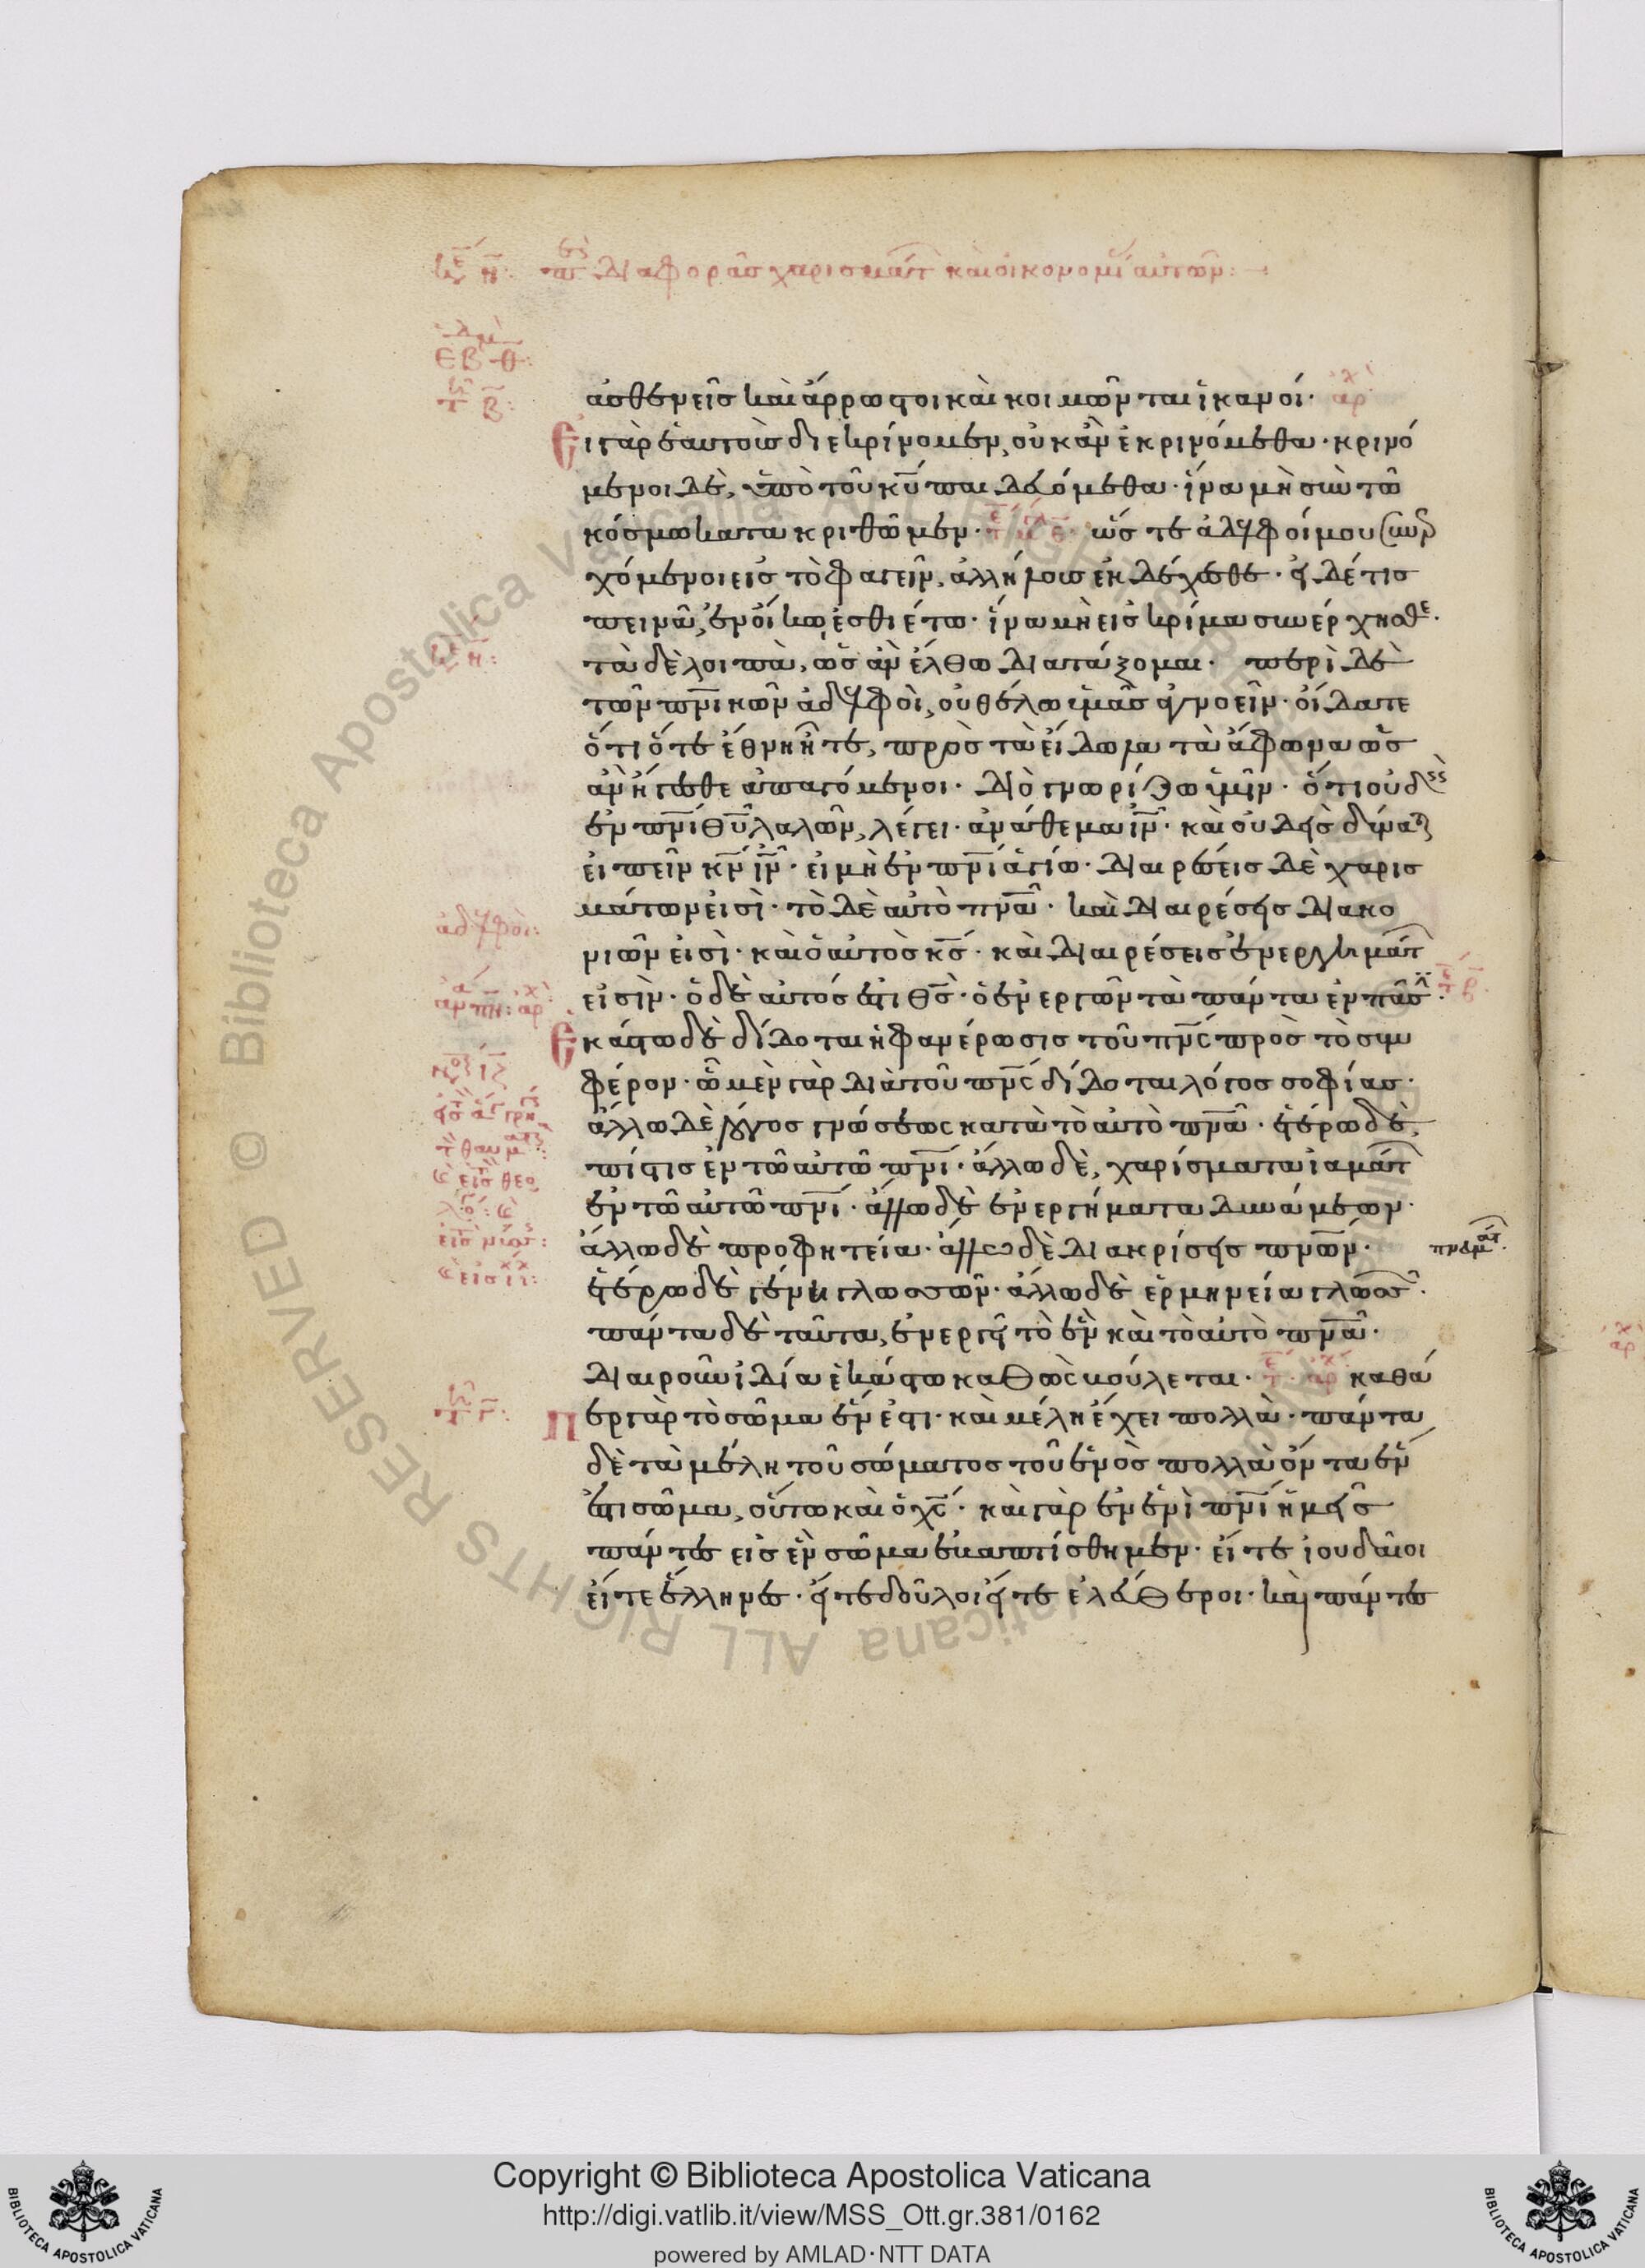 κε η: περὶ διαφορᾶς χαρισμάτ καὶ οἰκονομί αὐτῶν:
ἀσθενεῖς καὶ ἄρρωστοι καὶ κοιμῶνται ἱκανοί· ἀρχ
Εἰ γὰρ ἑαυτοὺς διεκρίνομεν, οὐκ ἂν ἐκρινόμεθα· κρινό
μενοι δὲ, ὑπὸ τοῦ κ̅υ̅ παιδευόμεθα· ἵνα μὴ σὺν τῶ
κόσμω κατακριθῶμεν· ὥστε ἀδελφοί μου συνερ
χόμενοι εἰς τὸ φαγεῖν, ἀλλήλους ἐκδέχεσθε· εἰ δέ τις
πεινᾶ, ἐν οἴκω ἐσθιέτω· ἵνα μὴ εἰς κρίμα συνέρχησθε·
τὰ δὲ λοιπὰ, ὡς ἂν ἔλθω διατάξομαι· περὶ δὲ
τῶν πν̅ικῶν ἀδελφοὶ, οὐ θέλω ὑμᾶς ἀγνοεῖν· οἴδατε
ὅτι ὅτε ἔθνη ἦτε, πρὸς τὰ εἴδωλα τὰ ἄφωνα ὡς
ἂν ἤγεσθε ἀπαγόμενοι· διὸ γνωρίζω ὑμῖν· ὅτι οὐδεὶς
ἐν πν̅ι θ̅υ̅ λαλῶν, λέγει· ἀνάθεμα ι̅ν̅· καὶ οὐδεὶς δύναται
εἰπεῖν κ̅ν̅ ι̅ν̅· εἰ μὴ ἐν πν̅ι ἁγίω· διαιρέσεις δὲ χαρισ
μάτων εἰσὶ· τὸ δὲ αὐτὸ πν̅α· καὶ διαιρέσεις διακο
νιῶν εἰσὶ· καὶ ὁ αὐτὸς κ̅ς̅· καὶ διαιρέσεις ἐνεργημάτ
εἰσὶν· ὁ δὲ αὐτός ἐστι θ̅ς̅· ὁ ἐνεργῶν τὰ πάντα ἐν πᾶσι·
Ἑκάστω δὲ δίδοται ἡ φανέρωσις τοῦ πν̅ς πρὸς τὸ συμ
φέρον· ὧ μὲν γὰρ διὰ τοῦ πν̅ς δίδοται λόγος σοφίας·
ἄλλω δὲ λόγος γνώσεως κατὰ τὸ αὐτὸ πν̅α· ἑτέρω δὲ,
πίστις ἐν τῶ αὐτῶ πν̅ι· ἄλλω δὲ, χαρίσματα ἰαμάτ
ἐν τῶ αὐτῶ πν̅ι· ἄλλω δὲ ἐνεργήματα δυνάμεων·
ἄλλω δὲ προφητεία· ἄλλω δὲ διακρίσεις πν̅ων·
ἑτέρω δὲ γένη γλωσσῶν· ἄλλω δὲ ἑρμηνεία γλωσσ·
πάντα δὲ ταῦτα, ἐνεργεῖ τὸ ἓν καὶ τὸ αὐτὸ πν̅α·
διαιροῦν ἰδία ἑκάστω καθὼς βούλεται· καθά
περ γὰρ τὸ σῶμα ἕν ἐστι· καὶ μέλη ἔχει πολλὰ· πάντα
δὲ τὰ μέλη τοῦ σώματος τοῦ ἑνὸς πολλὰ ὄντα ἕν
ἐστι σῶμα, οὕτω καὶ ὁ χ̅ς̅· καὶ γὰρ ἐν ἑνὶ πν̅ι ἡμεῖς
πάντες εἰς ἓν σῶμα ἐβαπτίσθημεν· εἴτε ἰουδαῖοι
εἴτε ἕλληνες· εἴτε δοῦλοι εἴτε ἐλεύθεροι· καὶ πάντες
Copyright © Biblioteca Apostolica Vaticana
http://digi.vatlib.it/view/MSS_Ott.gr.381/0162
powered by AMLAD·NTT DATA
BIBLIOTECA APOSTOLICA VATICANA
BIBLIOTECA APOSTOLICA VATICANA